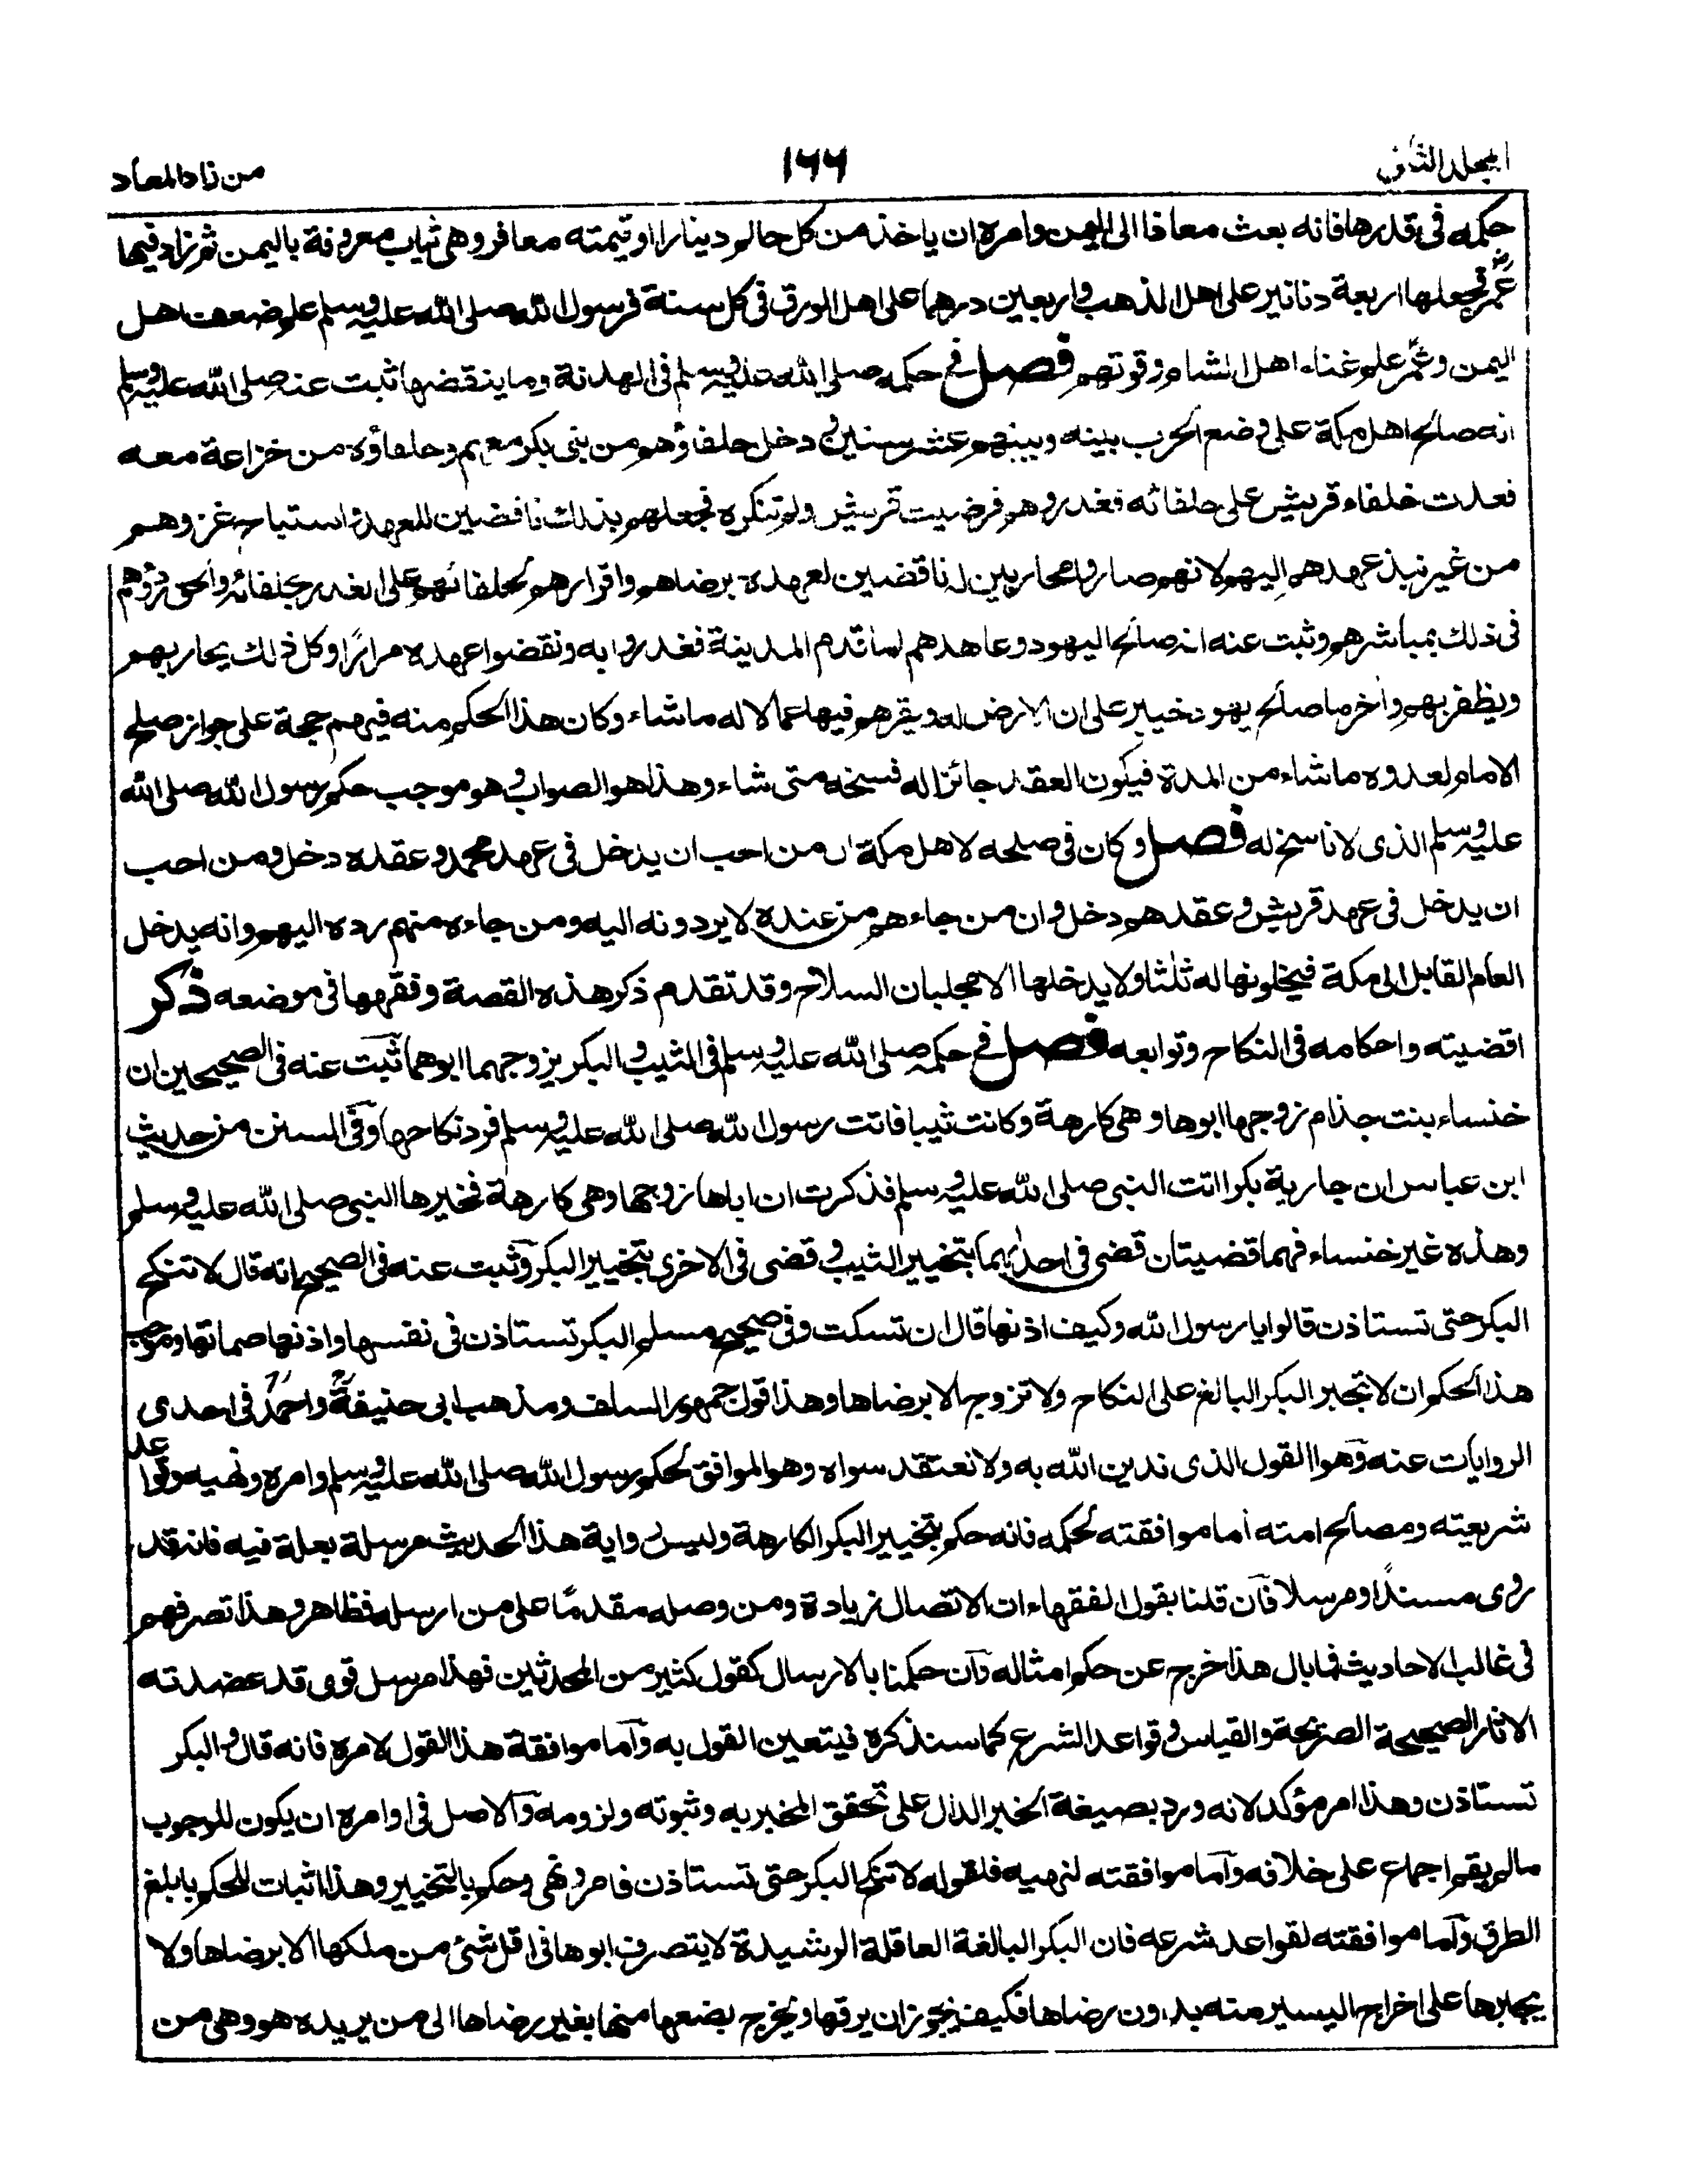 المجلد الثاني
١٦٦
من زاد المعاد
حكمه في قدرها فانه بعث معاذا الى اليمن وامره ان ياخذ من كل حالم دينارا او قيمته معافر وهي ثياب معروفة باليمن ثم زاد فيها
عمرؓ فجعلها اربعة دنانير على اهل الذهب واربعين درهما على اهل الورق في كل سنة فرسول الله صلى الله عليه وسلم علم ضعف اهل
اليمن وعمرؓ علم غناء اهل الشام وقوتهم فصل في حكمه صلى الله عليه وسلم في الهدنة وما ينقضها ثبت عنه صلى الله عليه وسلم
انه صالح اهل مكة على وضع الحرب بينه وبينهم عشر سنين ودخل حلفاؤهم من بني بكر معهم وحلفاؤه من خزاعة معه
فعدت حلفاء قريش على حلفائه فغدروهم فرضيت قريش ولم تنكره فجعلهم بذلك ناقضين للعهد واستباح غزوهم
من غير نبذ عهدهم اليهم لانهم صاروا محاربين له ناقضين لعهده برضاهم واقرارهم لحلفائهم على الغدر بحلفائه والحق ردؤهم
في ذلك بمباشرهم وثبت عنه انه صالح اليهود وعاهدهم لما قدم المدينة فغدروا به ونقضوا عهده مرارًا وكل ذلك يحاربهم
ويظفر بهم وآخر ما صالح يهود خيبر على ان الارض له ويقرهم فيها عمالا له ما شاء وكان هذا الحكم منه فيهم حجة على جواز صلح
الامام لعدوه ما شاء من المدة فيكون العقد جائزا له فسخه متى شاء وهذا هو الصواب وهو موجب حكم رسول الله صلى الله
عليه وسلم الذي لا ناسخ له فصل وكان في صلحه لاهل مكة ان من احب ان يدخل في عهد محمد وعقده دخل ومن احب
ان يدخل في عهد قريش وعقدهم دخل وان من جاءهم من عنده لا يردونه اليه ومن جاءه منهم رده اليهم وانه يدخل
العام القابل الى مكة فيخلونها له ثلثا ولا يدخلها الا بجلبان السلاح وقد تقدم ذكر هذه القصة وفقهها في موضعه ذكر
اقضيته واحكامه في النكاح وتوابعه فصل في حكمه صلى الله عليه وسلم في الثيب والبكر يزوجهما ابوهما ثبت عنه في الصحيحين ان
خنساء بنت جذام زوجها ابوها وهي كارهة وكانت ثيبا فاتت رسول الله صلى الله عليه وسلم فرد نكاحها وفي السنن من حديث
ابن عباس ان جارية بكرا اتت النبي صلى الله عليه وسلم فذكرت ان اباها زوجها وهي كارهة فخيرها النبي صلى الله عليه وسلم
وهذه غير خنساء فهما قضيتان قضى في احديهما بتخيير الثيب وقضى في الاخرى بتخيير البكر وثبت عنه في الصحيح انه قال لا تنكح
البكر حتى تستاذن قالوا يا رسول الله وكيف اذنها قال ان تسكت وفي صحيح مسلم البكر تستاذن في نفسها واذنها صماتها وموجب
هذا الحكم ان لا تجبر البكر البالغ على النكاح ولا تزوج الا برضاها وهذا قول جمهور السلف ومذهب ابي حنيفةؒ واحمدؒ في احدى
الروايات عنه وهو القول الذي ندين الله به ولا نعتقد سواه وهو الموافق لحكم رسول الله صلى الله عليه وسلم وامره ونهيه وقواعد
شريعته ومصالح امته اما موافقته لحكمه فانه حكم بتخيير البكر الكارهة وليس رواية هذا الحديث مرسلة بعلة فيه فانه قد
روى مسندًا ومرسلا فان قلنا بقول الفقهاء ان الاتصال زيادة ومن وصله مقدمًا على من ارسله فظاهر وهذا تصرفهم
في غالب الاحاديث فما بال هذا خرج عن حكم امثاله وان حكمنا بالارسال كقول كثير من المحدثين فهذا مرسل قوى قد عضدته
الاثار الصحيحة الصريحة والقياس وقواعد الشرع كما سنذكره فيتعين القول به واما موافقة هذا القول لامره فانه قال والبكر
تستاذن وهذا امر مؤكد لانه ورد بصيغة الخبر الدال على تحقق المخبر به وثبوته ولزومه والاصل في اوامره ان يكون للوجوب
مالم يقم اجماع على خلافه واما موافقته لنهيه فلقوله لا تنكح البكر حتى تستاذن فامر ونهى وحكم بالتخيير وهذا اثبات للحكم بابلغ
الطرق واما موافقته لقواعد شرعه فان البكر البالغة العاقلة الرشيدة لا يتصرف ابوها في اقل شئ من ملكها الا برضاها ولا
يجبرها على اخراج اليسير منه بدون رضاها فكيف يجوز ان يرقها ويخرج بضعها منها بغير رضاها الى من يريده هو وهي من